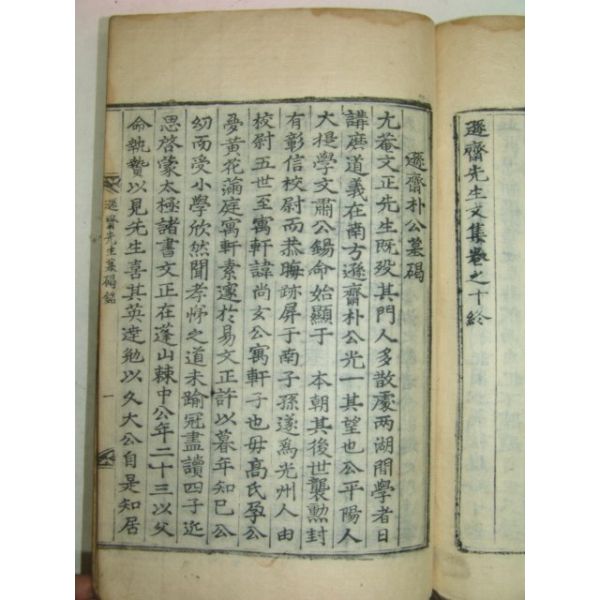 遜齋先生文集卷之十終
遜齋朴公墓碣
尤菴文正先生既歿其門人多散處两湖間學者日
講磨道義在南方遜齋朴公光一其望也公平陽人
大提學文肅公錫命始顯于 本朝其後世襲勲封
有彰信校尉而恭晦跡屏于南子孫遂爲光州人由
校尉五世至寓軒諱尚玄公寓軒子也母髙氏孕公
夢黃花滿庭寓軒素邃於易文正許以暮年知已公
幼而受小學欣然聞孝悌之道未踰冠盡讀四子近
思啓蒙太極諸書文正在蓬山棘中公年二十三以父
命執贄以見先生喜其英達勉以久大公自是知居
遜齋先生墓碣銘 一